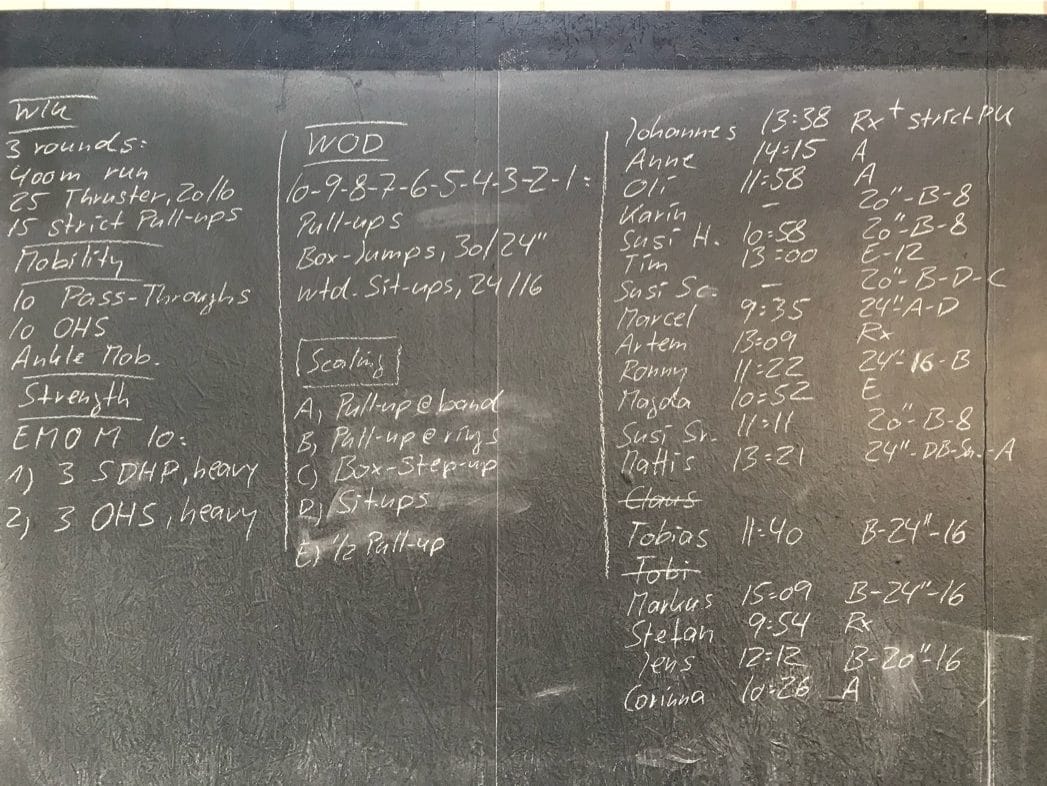 3 rounds:
400m run
25 Thruster, 20/10
15 strict Pull-ups
Mobility
10 Pass-Throughs
10 OHS
Ankle Mob.
Strength
EMOM 10:
1) 3 SDHP, heavy
2) 3 OHS, heavy
WOD
10-9-8-7-6-5-4-3-2-1:
Pull-ups
Box-Jumps, 30/24"
wtd. Sit-ups, 24/16
Scaling
A) Pull-up @ band
B) Pull-up @ rings
C) Box-Step-up
D) Sit-ups
E) 1/2 Pull-up
Johannes 13:38 Rx + strict PU
Anne 14:15 A
Oli 11:58 A
Karin - 20"-B-8
Susi H. 10:58 20"-B-8
Tim 13:00 E-12
Susi Sc. - 20"-B-D-C
Marcel 9:35 24"-A-D
Artem 13:09 Rx
Ronny 11:22 24"-16-B
Magda 10:52 E
Susi Sr. 11:11 20"-B-8
Mattis 13:21 24"-DB-Sn.-A
Claus
Tobias 11:40 B-24"-16
Tobi
Markus 15:09 B-24"-16
Stefan 9:54 Rx
Jens 12:12 B-20"-16
Corinna 10:26 A